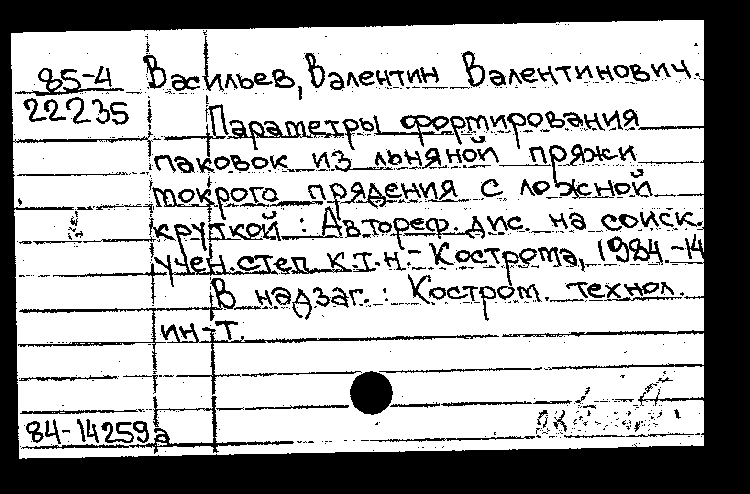 85-4 Васильев, Валентин Валентинович.
22235
Параметры формирования
паковок из льняной пряжи
мокрого прядения с ложной
круткой : Автореф. дис. на соиск.
учен. степ. к.т.н. - Кострома, 1984. - 14
В надзаг. : Костром. технол.
ин-т.
84-14259а